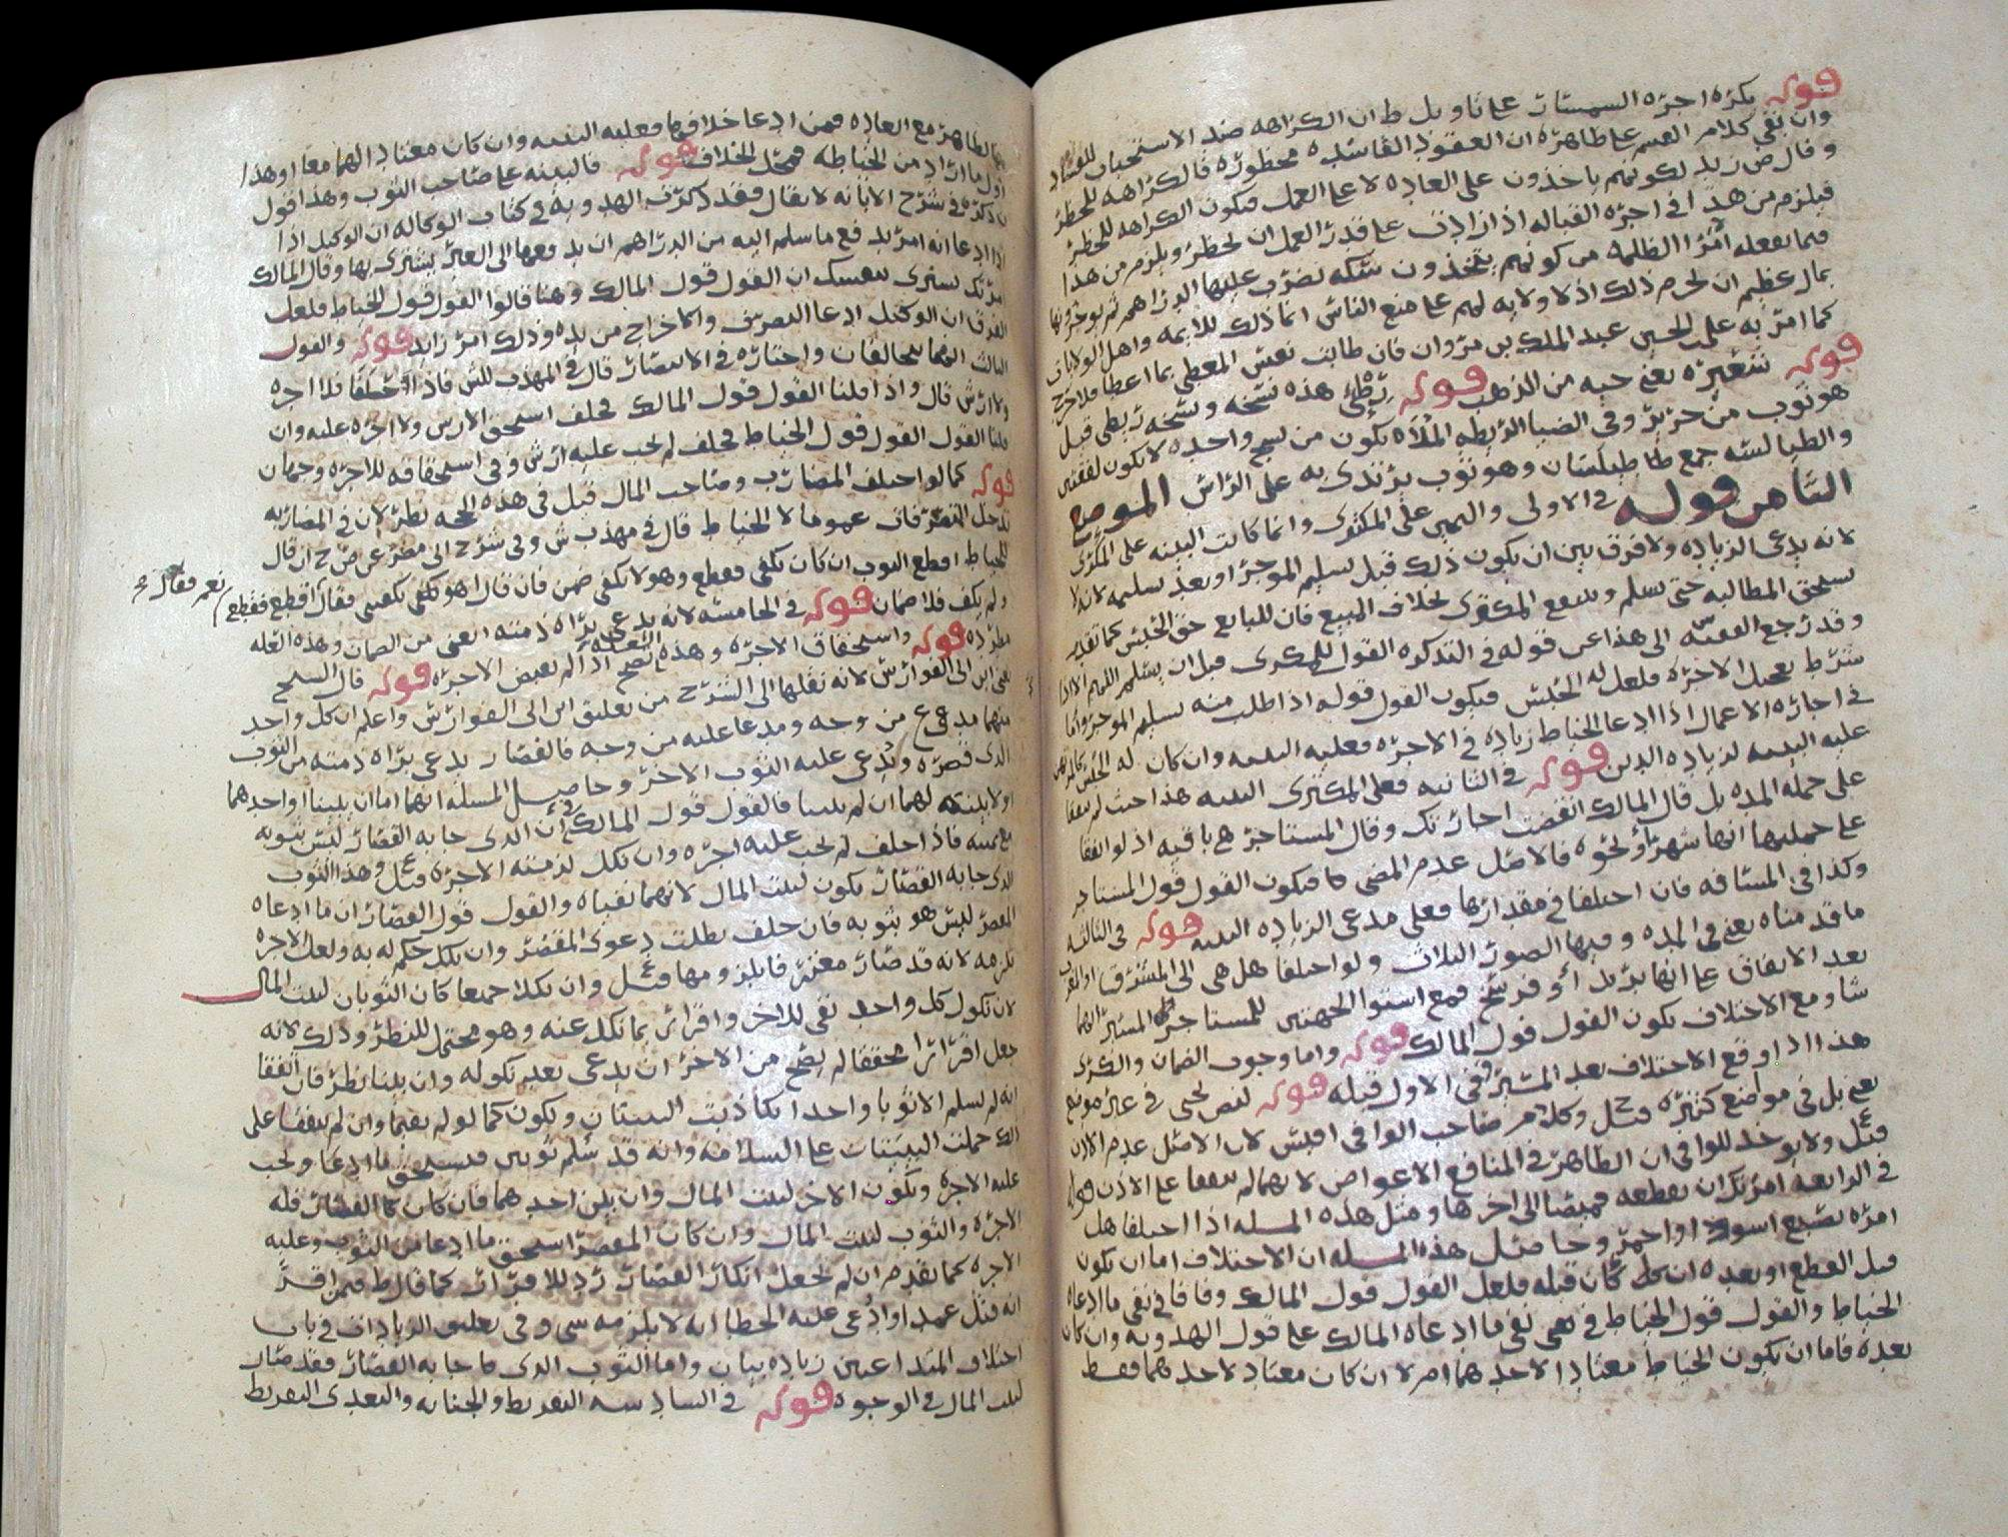 قوله يكره اجرة السمسار على تاويل ط ان الكراهه ضد الاستحباب للفساد
وان بقي كلام القسم على ظاهره ان العقود الفاسده محظوره فالكراهه للحظر
وقال ص زيد لكونهم ياخذون على العاده لا على العمل فيكون الكراهه للحظر
فيلزم من هذا في اجرة القباله اذا زادت على قدر العمل ان يحظر ويلزم من هذا
فيما يفعله امرا الظلمه من كونهم يتخذون سكه تضرب عليها الدراهم ثم يوجرونها
بمال عظيم ان يحرم ذلك اذ لا ولايه لهم على منع الناس انما ذلك للايمه واهل الولايات
كما امر به علي بن الحسين عبد الملك بن مروان فان طابت نفس المعطي بما اعطا فلا حرج
قوله شعيره يعني حبه من الذهب قوله هذه نسخه ونسخه ربطي قيل
هو ثوب من حرير وفي الضيا الريطه الملاه يكون من نسج واحده لا يكون لفقتين
والطيالسه جمع طيلسان وهو ثوب يرتدى به على الراس الموضع
الثامن قوله في الاولى واليمين على المكترى وانما كانت البينه على المكرى
لانه يدعي الزياده ولا فرق بين ان يكون ذلك قبل تسليم الموجر او بعد تسليمه لانه لا
يستحق المطالبه حتى يسلم وينتفع المكترى بخلاف المبيع فان للبايع حق الحبس كما تقدم
وقد رجع الفقيه الى هذا عن قوله في التذكره القول للمكرى قبل ان يسلم اللهم الا اذا
شرط تعجيل الاجره فلعل له الحبس فيكون القول قوله اذا طلب منه تسليم الموجر واما
في اجارة الاعمال اذا ادعا الخياط زياده في الاجره فعليه البينه وان كان له الحبس كالمرتهن
عليه البينه لزيادة الدين قوله في الثانيه فعلى المكترى البينه هذا حيث لم يتفقا
على جملة المده بل قال المالك انقضت اجارتك وقال المستاجر هي باقيه اذ لو اتفقا
على جملتها انها شهر او نحوه فالاصل عدم المضي فيكون القول قول المستاجر
وكذا في المسافه فان اختلفا في مقدارها فعلى مدعي الزياده البينه قوله في الثالثه
ما قدمناه يعني في المده وفيها الصور الثلاث ولو اختلفا هل هي الى المشرق او الغرب
بعد الاتفاق على انها بريد او فرسخ فمع استوا الجهتين للمستاجر المسير ايهما
شا ومع الاختلاف يكون القول قول المالك قوله واما وجوب الضمان والكرى
هذا اذا وقع الاختلاف بعد المسير وفي الاول قبله قوله لنص يحيى في غير موضع
يعني بل في مواضع كثيره وكلام صاحب الوافي اقيس لان الاصل عدم الاذن
ولا يوخذ للوافي ان الظاهر في المنافع الاعواض لانهما لم يتفقا على الاذن قوله
في الرابعه امرتك ان تقطعه قميصا الى اخرها ومثل هذه المسله اذا اختلفا هل
امره بصبغ اسود او احمر وحاصل هذه المسله ان الاختلاف اما ان يكون
قبل القطع او بعده ان كان قبله فلعل القول قول المالك وفاقا في نفي ما ادعاه
الخياط والقول قول الخياط في نفي ما ادعاه المالك على قول الهدويه وان كان
بعده فاما ان يكون الخياط معتادا لاحدهما ام لا ان كان معتادا لاحدهما فقط
فالظاهر مع العاده فمن ادعا خلافها فعليه البينه وان كان معتادا لهما معا او هذا
اول ما اراد من الخياطه فمحل الخلاف قوله فالبينه على صاحب الثوب وهذا قول
ن ذكره في شرح الابانه لا يقال فقد ذكرت الهدويه في كتاب الوكاله ان الوكيل اذا
اذا ادعا انه امر بدفع ما سلم اليه من الدراهم ان يدفعها الى الغير يشترى بها وقال المالك
امرتك تشترى بنفسك ان القول قول المالك وهنا قالوا القول قول الخياط فلعل
الفرق ان الوكيل ادعا التصرف والاخراج من يده وذلك امر زايد قوله والقول
الثالث انهما يتحالفان واختاره في الانتصار قال في المهذب للش فاذا تحالفا فلا اجره
ولا ارش قال واذا قلنا القول قول المالك فحلف استحق الارش ولا اجره عليه وان
قلنا القول القول قول الخياط فحلف لم يجب عليه ارش وفي استحقاقه للاجره وجهان
قوله كما لو اختلف المضارب وصاحب المال قيل في هذه الحجه نظر لان في المضاربه
يدخل التصرفات عموما لا الخياط قال في مهذب ش وفي شرح ابي مضر عن ص ح ان قال
للخياط اقطع الثوب ان كان يكفي فقطع وهو لا يكفي ضمن فان قال هو يكفي فقال اقطع فقطع
نعم فقال
ولم يكف فلا ضمان قوله في الخامسه لانه يدعي براة ذمته يعني من الضمان وهذه العله
مطرده قوله واستحقاق الاجره وهذه العله تصح اذا لم يقبض الاجره قوله قال الشيخ
يعني ابن ابي الفوارس لانه نقلها الى الشرح من تعليق ابن ابي الفوارس واعلم ان كل واحد
منهما مدعي من وجه ومدعا عليه من وجه فالقصار يدعي براة ذمته من الثوب
الذى قصره ويدعي عليه الثوب الاخر وحاصل المسله انهما اما ان يبينا او احدهما
او لا بينه لهما ان لم يبينا فالقول قول المالك في ان الذى جا به القصار ليس بثوبه
مع يمينه فاذا حلف لم يجب عليه اجره وان نكل لزمته الاجره وهذا الثوب
الذى جا به القصار يكون لبيت المال لانهما نفياه والقول قول القصار ان ما ادعاه
المقصر ليس هو بثوبه فان حلف بطلت دعوى المقصر وان نكل حكم له به ولعل الاجره
تلزمه لانه قد صار معترفا بلزومها وان نكلا جميعا كان الثوبان لبيت المال
لان نكول كل واحد نفي للاخر واقرار بما نكل عنه وهو محتمل للنظر وذلك لانه
جعل اقرارا محققا لم يصح من الاخر ان يدعي بعد نكوله وان بينا نظر فان اتفقا
انه لم يسلم الا ثوبا واحدا تكاذبت البينتان ويكون كما لو لم يقيما وان لم يتفقا على
ذلك حملت البينات على السلامه وانه قد سلم ثوبين فيستحق ما ادعا ويجب
عليه الاجره ويكون الاخر لبيت المال وان بين احدهما فان كان القصار فله
الاجره والثوب لبيت المال وان كان المقصر استحق ما ادعا من الثوب وعليه
الاجره كما تقدم ان لم يجعل انكار القصار رد للاقرار كما قال ط فيمن اقر
انه قتل عمدا وادعي عليه الخطا انه لا يلزمه شي وفي تعليق الزيادات في باب
اختلاف المتداعيين زياده بيان واما الثوب الذى جا به القصار فقد صار
لبيت المال في الوجوه قوله في السادسه التفريط والجنايه والتعدى التفريط